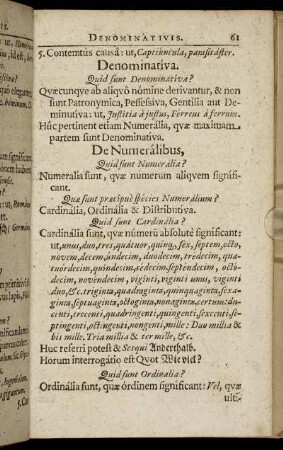 DENOMINATIVIS. 61
5. Contemtûs causâ: ut, Captiuncula, parasitáster.
Denominativa.
Quid sunt Denominativa?
Qvæcunqve ab aliqvô nômine derivantur, & non
sunt Patronymica, Pessessiva, Gentilia aut De-
minutiva: ut, Justitia à justus, Ferreus à ferrum.
Hûc pertinent etiam Numerâlia, qvæ maximam
partem sunt Denominativa.
De Numerâlibus,
Quid sunt Numerâlia?
Numeralia sunt, qvæ numerum aliqvem signifi-
cant.
Quæ sunt præcipuè spécies Numerâlium?
Cardinâlia, Ordinâlia & Distributiva.
Quid sunt Cardinâlia?
Cardinâlia sunt, qvæ númerũ absolutè significant:
ut, unus, duo, tres, quátuor, quinq, sex, septem, octo,
novem, decem, úndecim, duodecim, trédecim, qua-
tuórdecim, quindecim, sédecim, septéndecim, octó-
decim, novéndecim, viginti, viginti unus, viginti
duo, &c. triginta, quadraginta, quinquaginta, sex a-
ginta, septuaginta, octoginta, nonaginta, centum: du-
centi, trecenti, quadringenti, quingenti, sexcenti, se-
ptingenti, octingenti, nongenti, mille: Duo millia &
bis mille, Tria millia & ter mille, &c.
Huc referri potest & Sesqui Anderthalb.
Horum interrogâtio est Qvot Wie viel?
Quid sunt Ordinalia?
Ordinâlia sunt, quæ órdinem significant: Vel, qvæ
ulti-